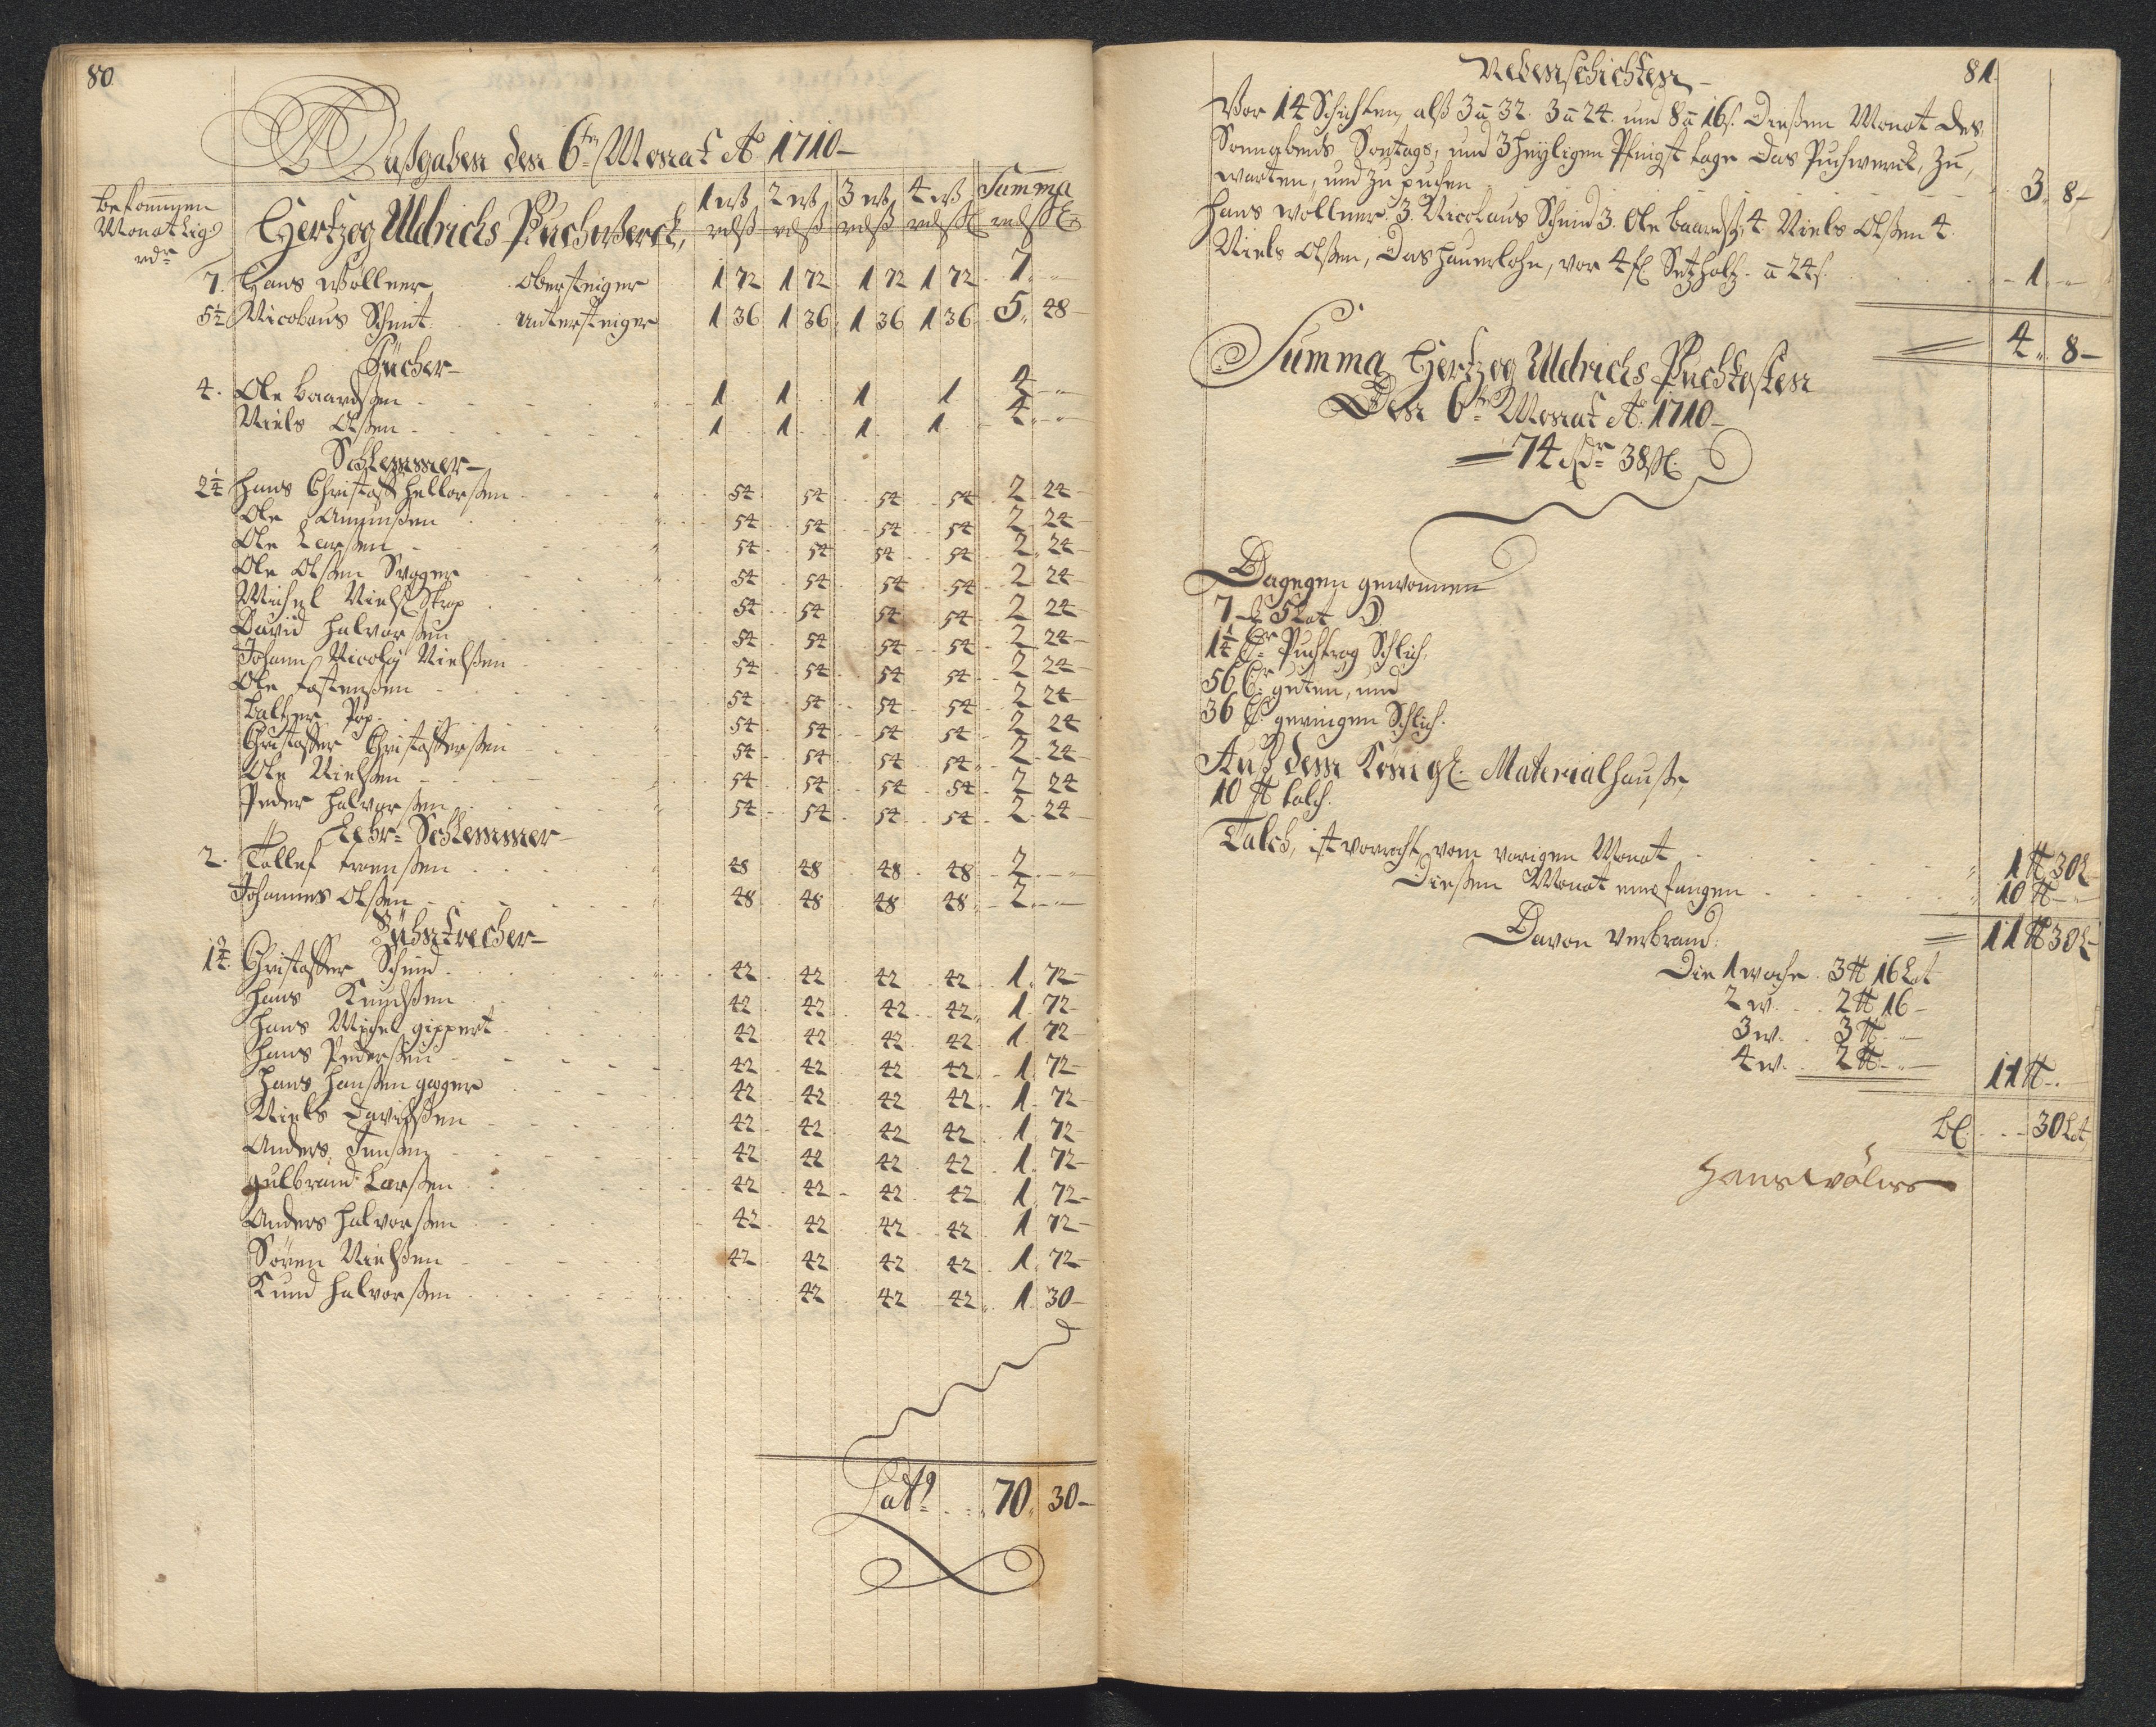 80
Außgaben den 6ten Monat Ao 1710
bekommen
Monatlig
rdr
1 w 2 w 3 w 4 w Summa
Hertzog Uldrichs Puchwerck, rdß rdß rdß rdß rdß
7. Hans Wöllner Obersteiger 1 72 1 72 1 72 1 72 7 "
5½ Nicolaus Schmit Untersteiger 1 36 1 36 1 36 1 36 5 48
Pücher
4. Ole Baardßen 1 1 1 1 4 "
Niels Olßen 1 1 1 1 4 "
Schlemmer
2¼ Hans Christoff 54 54 54 54 2 24
Ole Amunßen 54 54 54 54 2 24
Ole Larßen 54 54 54 54 2 24
Ole Olßen 54 54 54 54 2 24
Michel Nielß 54 54 54 54 2 24
David Halvorßen 54 54 54 54 2 24
Johann Nicolaj Nielßen 54 54 54 54 2 24
Ole Tostenßen 54 54 54 54 2 24
Baltzer Pop 54 54 54 54 2 24
Christoffer Christofferßen 54 54 54 54 2 24
Ole Nielßen 54 54 54 54 2 24
Peder Halvorßen 54 54 54 54 2 24
Lehr-Schlemmer
2. Tollef 48 48 48 48 2 "
Johannes Olßen 48 48 48 48 2 "
Bühntrecher
1¾ Christoffer Schmid 42 42 42 42 1 72
Hans Knudßen 42 42 42 42 1 72
Hans Michel gippert 42 42 42 42 1 72
Hans Pederßen 42 42 42 42 1 72
Hans Hanßen 42 42 42 42 1 72
Niels Davidßen 42 42 42 42 1 72
Anders Jenßen 42 42 42 42 1 72
gulbrand Larßen 42 42 42 42 1 72
Anders Halvorßen 42 42 42 42 1 72
Sören Nielßen 42 42 42 42 1 72
Knud Halvorßen 42 42 42 1 30
Lat: 70 30
81
Nebenschichten
Vor 14 Schichten, alß 3 à 32. 3 à 24. und 8 à 16 ß. Dießen Monat des
Sonnabends Sontags, und 3 heyligen Pfingst tage das Puchwerck, zu
warten, und zu puchen 3 8
Hans Wöllner 3. Nicolaus Schmid 3. Ole Baardß: 4. Niels Olßen 4.
Niels Olßen, das hauerlohn, vor 4 Setzholtz à 24 ß. 1 "
4 8
Summa Hertzog Uldrichs Puchkosten
Den 6ten Monat Ao. 1710
74 rdr 38 ß.
Dagegen gewonnen
7 5 Lot
1¼ Cr Puchtrog Schlich,
56 Cr guten, und
36 C geringen Schlich.
Auß dem Königl. Materialhauße
10 ℔ talch.
Talch, ist vorrath vom vorigen Monat 1 ℔ 30 L
Dießen Monat empfangen 10 ℔ "
Davon verbrand: 11 ℔ 30 L
Die 1 woche 3 ℔ 16 Lot
2 w. 2 ℔ 16
3 w. 3 ℔ "
4 w. 2 ℔ " 11 ℔
bl 30 Lot
Hans Wölner